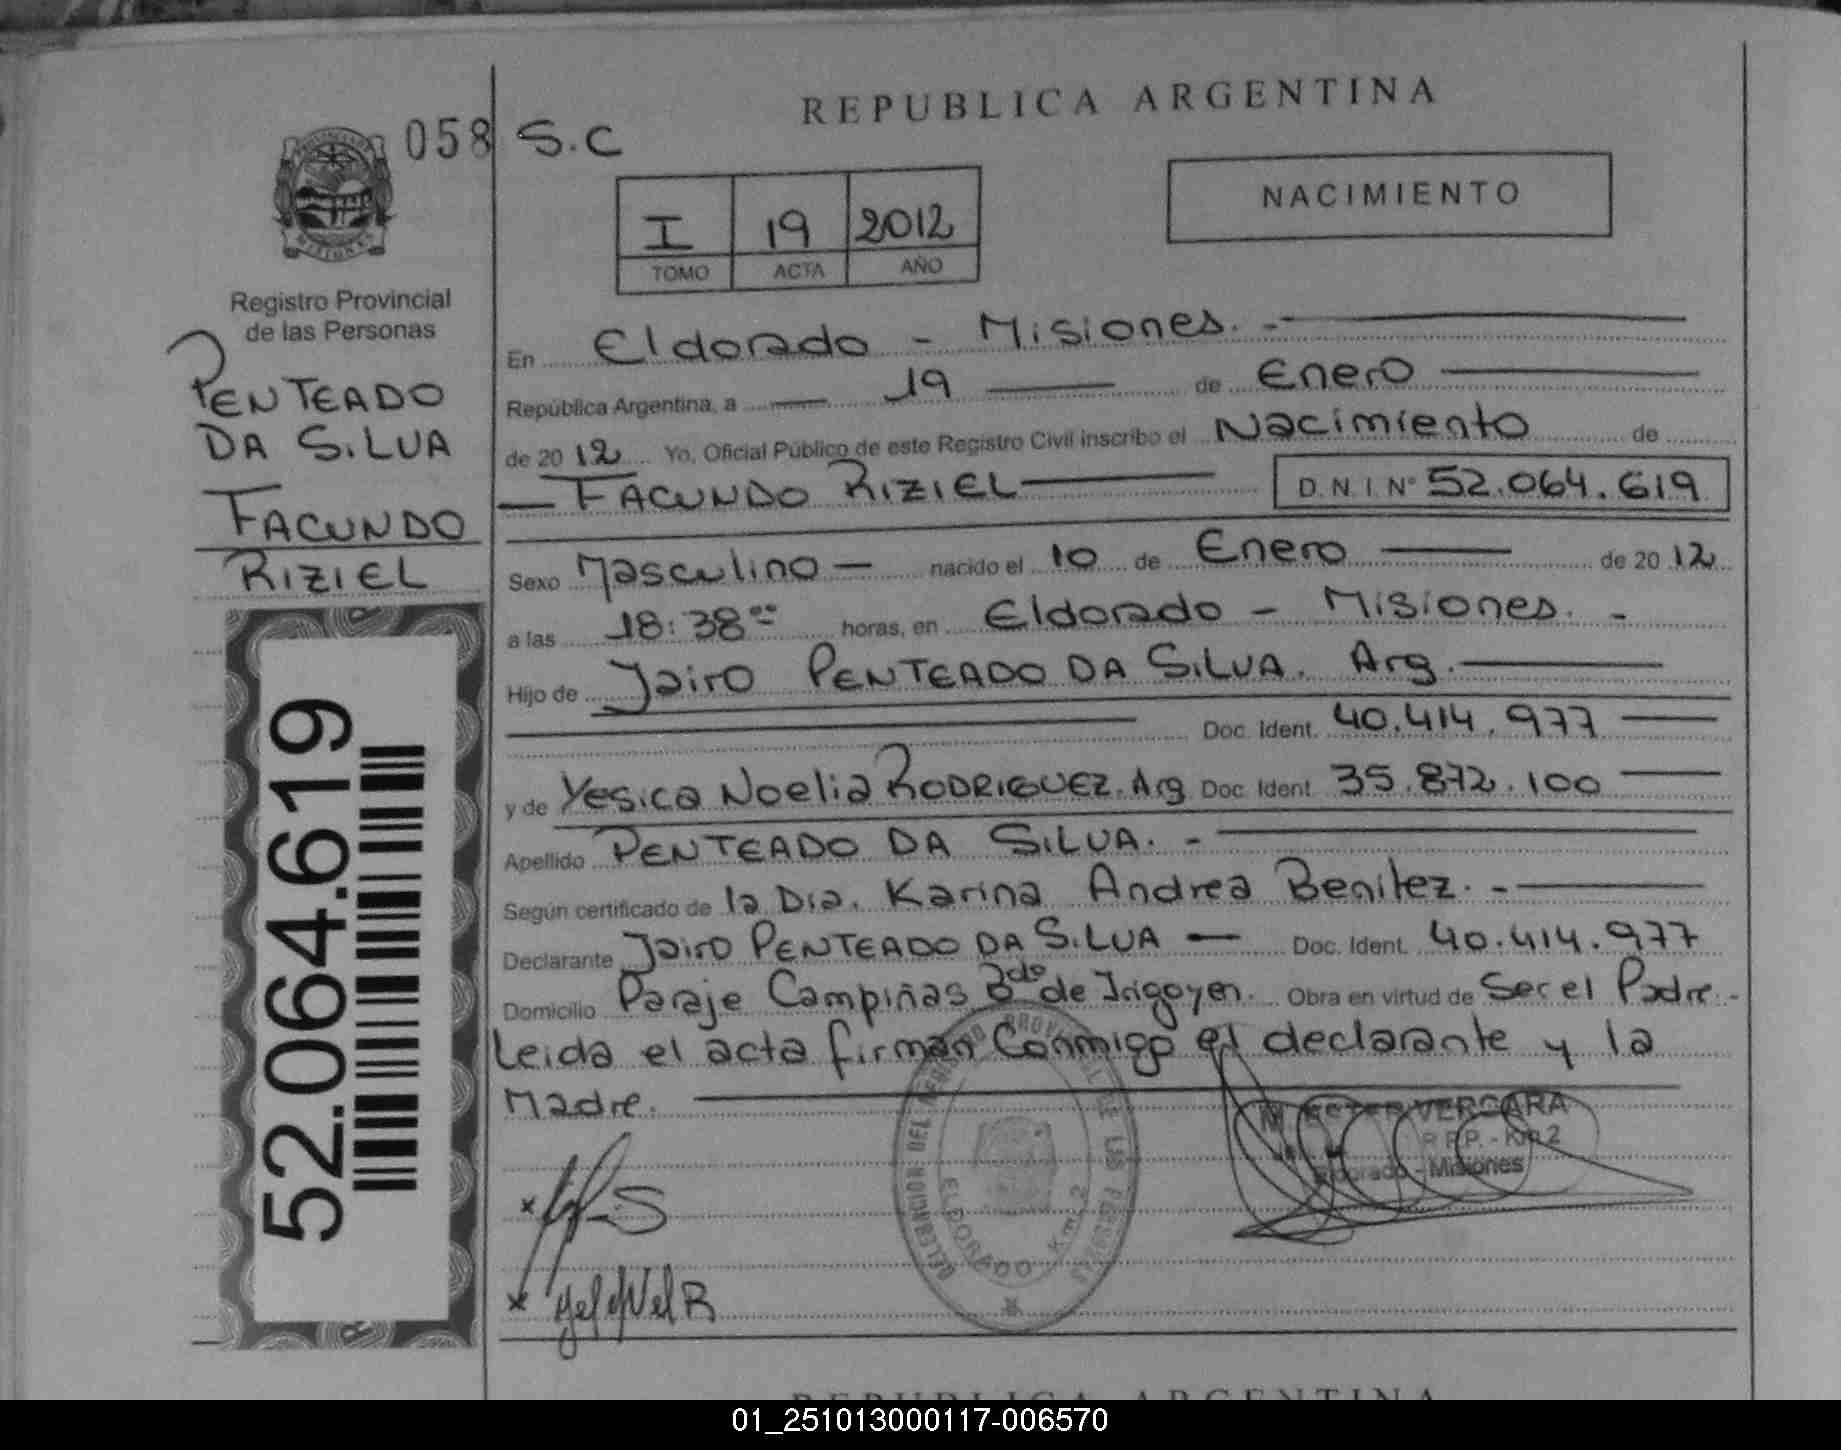 REPUBLICA ARGENTINA
058 S.C
NACIMIENTO
I 19 2012
TOMO ACTA AÑO
PROVINCIA DE MISIONES
Registro Provincial
de las Personas
PENTEADO
DA SILVA
FACUNDO
RIZIEL
52.064.619
En Eldorado - Misiones. -
República Argentina, a 19 de Enero
de 2012 Yo, Oficial Público de este Registro Civil inscribo el Nacimiento de
FACUNDO RIZIEL D.N.I.N° 52.064.619
Sexo Masculino nacido el 10 de Enero de 2012
a las 18:38 horas, en Eldorado - Misiones. -
Hijo de Jairo PENTEADO DA SILVA. Arg.
Doc. Ident. 40.414.977
y de Yesica Noelia RODRIGUEZ. Arg Doc. Ident. 35.872.100
Apellido PENTEADO DA SILVA. -
Según certificado de la Dra. Karina Andrea Benitez. -
Declarante Jairo PENTEADO DA SILVA Doc. Ident. 40.414.977
Domicilio Paraje Campiñas Bdo de Irigoyen. Obra en virtud de Ser el Padre. -
Leida el acta firman Conmigo el declarante y la
Madre.
M. ESTER VERGARA
R.P.P. - Km 2
Eldorado - Misiones
DELEGACION DEL REGISTRO PROVINCIAL DE LAS PERSONAS
ELDORADO Km. 2
REPUBLICA ARGENTINA
01_251013000117-006570